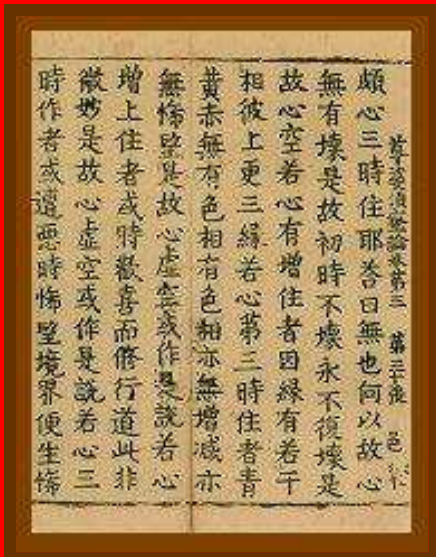 尊婆須蜜論卷第三 第三十張 邑
頗心三時住耶荅曰無也何以故心
無有壞是故初時不壞永不復壞是
故心空若心有增住者因緣有若干
相彼上更三緣若心苐三時住者青
黃赤無有色相有色相亦無增減亦
無悕望是故心虛空或作是說若心
增上住者或時歡喜而脩行道此非
微妙是故心虛空或作是說若心三
時作者或遭惡時悕望境界便生悕